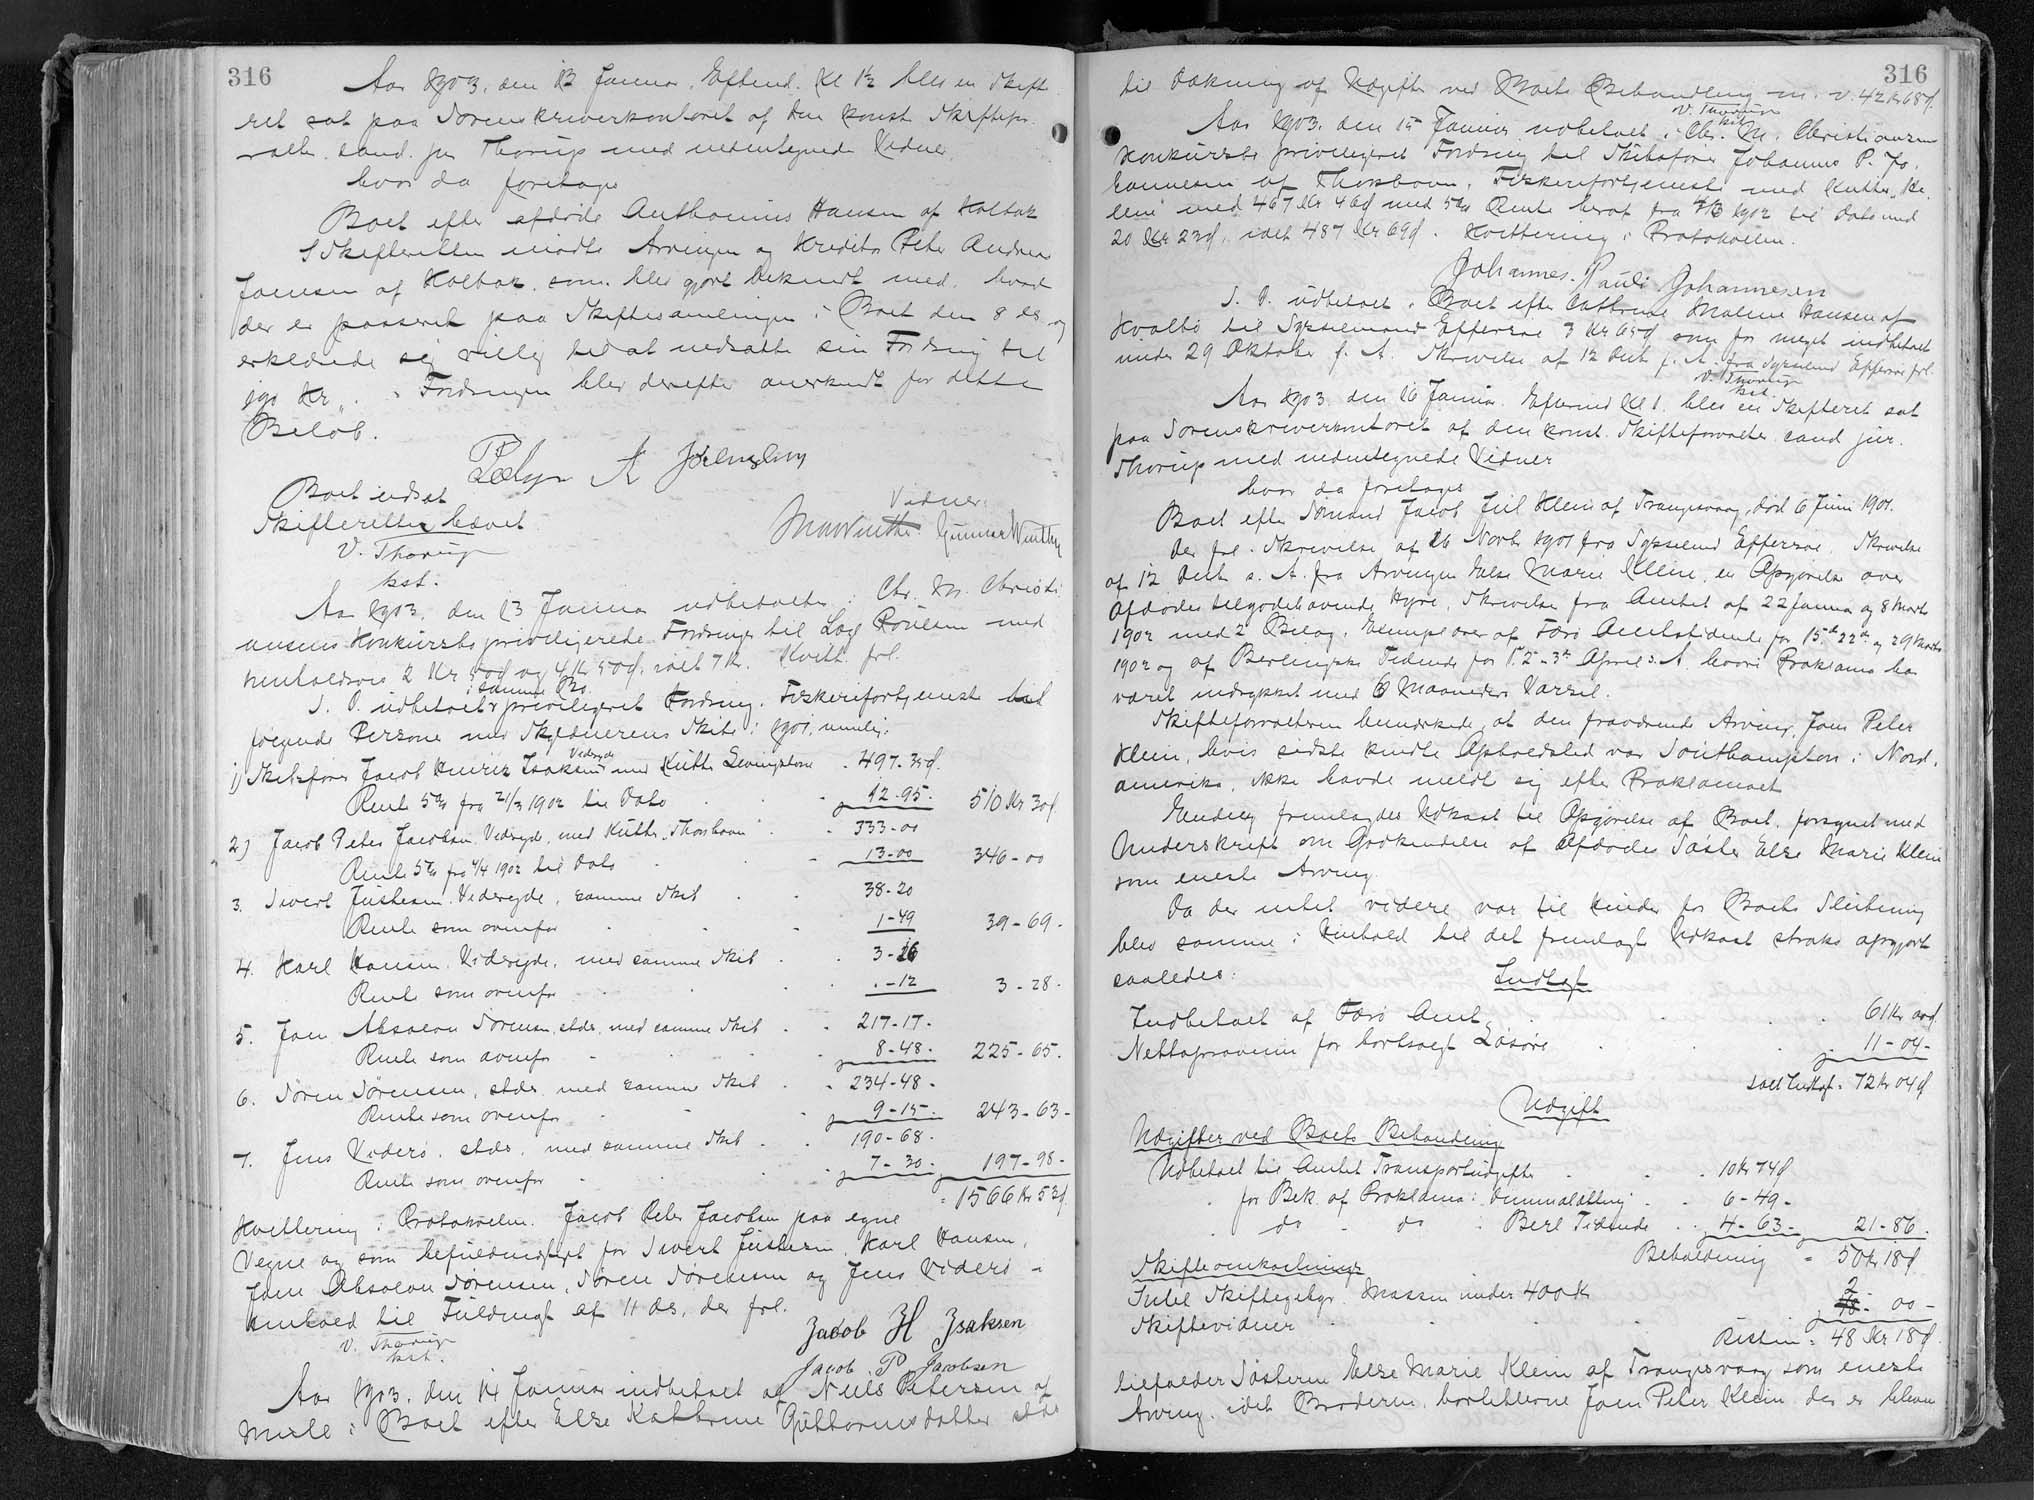 316
Aar 1903, den 13 Januar, Eftmd. Kl 1½ blev en Skifte
ret sat paa Sorenskriverkontoret af den konst. Skiftefor
valter, cand. jur Thorup med undertegnede Vidner,
hvor da foretoges
Boet efter afdøde Anthonius Hansen af Kolbak
I Skifteretten mødte Arvingen og Kreditor Peter Andreas
Joensen af Kolbak, som blev gjort bekendt med, hvad
der er passeret paa Skiftesamlingen i Boet den 8 ds og
erklærede sig villig til at nedsætte sin Fordring til
190 Kr. Fordringen blev derefter anerkendt for dette
Beløb.
Boet udsat
Skifteretten hævet
Vidner:
V. Thorup
kst.
Gunnar Winther
Aar 1903, den 13 Januar udbetaltes i Chr. M. Christi
ansens Konkursbo privilegerede Fordringer til Poulsen med
henholdsvis 2 Kr 50 ø og 4 Kr 50 ø, ialt 7 Kr. Kvitt. frl.
i samme Bo
S. D. udbetalt privilegeret Fordring, Fiskerefortjeneste til
følgende Persone med Skyldnerens Skibe i 1901, nemlig:
1) Skibsfører Jacob Henrik Isaksen Videreide med Kutter Livingstone - 497-35 ø.
Rente 5% fra 21/3 1902 til Dato - 12-95- 510 Kr 30 ø
2) Jacob Peter Jacobsen Videreide, med Kutter "Thorshavn" - 333-00
Rente 5% fra 4/4 1902 til Dato - 13-00 346-00
3. Sivert Justesen Videreide, samme Skib - 38-20
Rente som ovenfor - 1-49 39-69-
4. Karl Hansen Videreide, med samme Skib - 3-16
Rente som ovenfor - .-12 3-28-
5. Joen Absalon Sørensen, stds, med samme Skib - 217-17-
Rente som ovenfor - 8-48- 225-65.
6. Søren Sørensen, stds med samme Skib - 234-48-
Rente som ovenfor - 9-15- 243-63-
7. Jens Viderø, stds, med samme Skib - 190-68-
Rente som ovenfor - 7-30- 197-98-
= 1566 Kr 53 ø
Kvittering i Protokollen. Jacob Peter Jacobsen paa egne
Vegne og som befuldmægtiget for Sivert Justesen, Karl Hansen,
Joen Absalon Sørensen, Søren Sørensen og Jens Viderø i
Henhold til Fuldmagt af 11 ds, der frl.
V. Thorup
kst.
Jacob H Isaksen
Jacob P. Jacobsen
Aar 1903, den 14 Januar indbetalt af Niels Petersen af
Mule i Boet efter Else Kathrine Guttormsdatter stds
316
til Dækning af Udgifter ved Boets Behandling m. v. 42 Kr 68 ø.
V. Thorup
kst.
Aar 1903, den 15 Januar udbetalt i Chr. M. Christiansens
Konkursbo privilegeret Fordring til Skibsfører Johannes P. Jo
hannesen af Thorshavn, Fiskerefortjeneste med Kutter "He
lene" med 467 Kr 46 ø med 5% Rente heraf fra 1902 til Dato med
20 Kr 23 ø, ialt 487 Kr 69 ø. Kvittering i Protokollen.
Johannes Pauli Johannesen
S. D. udbetalt i Boet efter Cathrine Malene Hansen af
Kvalbø til Sysselmand Effersøe 3 Kr 65 ø som for meget indbetalt
under 29 Oktober f. A. Skrivelse af 12 Decb f. A. fra Sysselmd Effersøe frl.
V. Thorup
kst.
Aar 1903 den 16 Januar Eftermd Kl 1 blev en Skifteret sat
paa Sorenskriverkontoret af den konst. Skifteforvalter cand jur.
Thorup med undertegnede Vidner
hvor da foretoges
Boet efter Sømand Jacob Juul Klein af Trangisvaag, død 6 Juni 1901.
Der frl. Skrivelse af 26 Novb 1901 fra Sysselmd Effersøe. Skrivelse
af 12 Decb s. A. fra Arvingen Else Marie Klein, en Opgørelse over
Afdødes tilgodehavende Hyre, Skrivelse fra Amtet af 22 Januar og 8 Marts
1902 med 2 Bilag, Exemplarer af Færø Amtstidende for 15de 22de og 29 Marts
1902 og af Berlingske Tidende for 1. 2 - 3de April s. A. hvori Proklama har
været indrykket med 6 Maaneders Varsel.
Skifteforvalteren bemærkede, at den fraværende Arving, Joen Peter
Klein, hvis sidste kendte Opholdssted var Southampton i Nord
amerika, ikke havde meldt sig efter Proklamaet
Endelig fremlagdes Udkast til Opgørelse af Boet, forsynet med
Underskrift om Godkendelse af Afdødes Søster Else Marie Klein
som eneste Arving
Da der intet videre var til Hinder for Boets Slutning
blev samme i Henhold til det fremlagt Udkast straks opgjort
saaledes:
Indtægt
Indbetalt af Færø Amt - 61 Kr 00 ø
Nettoprovenu for bortsolgt Løsøre - 11-04-
ialt Indtægt = 72 Kr 04 ø
Udgift
Udgifter ved Boets Behandling
Udbetalt til Amtet Transportudgifter - 10 Kr 74 ø
for Bek. af Proklama i Dimmalætting - 6-49-
do - do i Berl Tidende - 4-63- 21-86.
Beholdning = 50 Kr 18 ø
Skifteomkostninger
Intet Skiftegebyr. Massen under 400 Kr
Skiftevidner 2-00-
Resten = 48 Kr 18 ø.
tilfalder Søsteren Else Marie Klein af Trangisvaag som eneste
Arving, idet Broderen, bortebleven Joen Peter Klein der er bleven